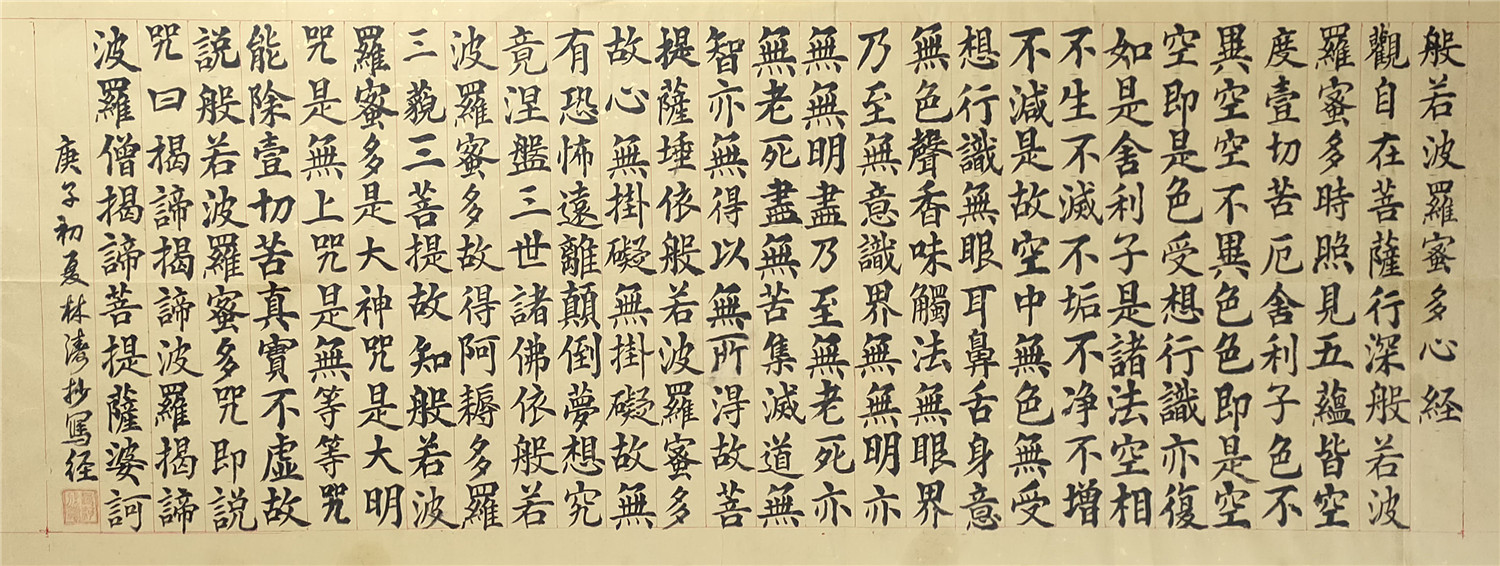 般若波羅蜜多心経
觀自在菩薩行深般若波
羅蜜多時照見五蘊皆空
度壹切苦厄舍利子色不
異空空不異色色即是空
空即是色受想行識亦復
如是舍利子是諸法空相
不生不滅不垢不净不增
不減是故空中無色無受
想行識無眼耳鼻舌身意
無色聲香味觸法無眼界
乃至無意識界無無明亦
無無明盡乃至無老死亦
無老死盡無苦集滅道無
智亦無得以無所得故菩
提薩埵依般若波羅蜜多
故心無掛礙無掛礙故無
有恐怖遠離顛倒夢想究
竟涅盤三世諸佛依般若
波羅蜜多故得阿耨多羅
三藐三菩提故知般若波
羅蜜多是大神咒是大明
咒是無上咒是無等等咒
能除壹切苦真實不虛故
說般若波羅蜜多咒即説
咒曰揭諦揭諦波羅揭諦
波羅僧揭諦菩提薩婆訶
庚子初夏林濤抄寫径